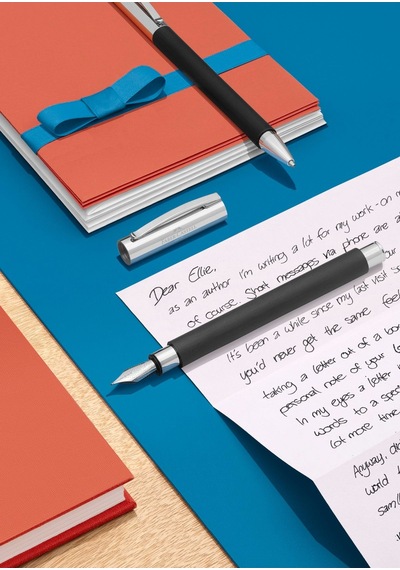 Dear Ellie,
as an author I'm writing a lot for my work - on m
of course. Short messages via phone are a
it's been a while since my last visit s
you'd never get the same feel
taking a letter out of a bo
personal note of your
In my eyes a letter
words to a spe
lot more time
Anyway,
world